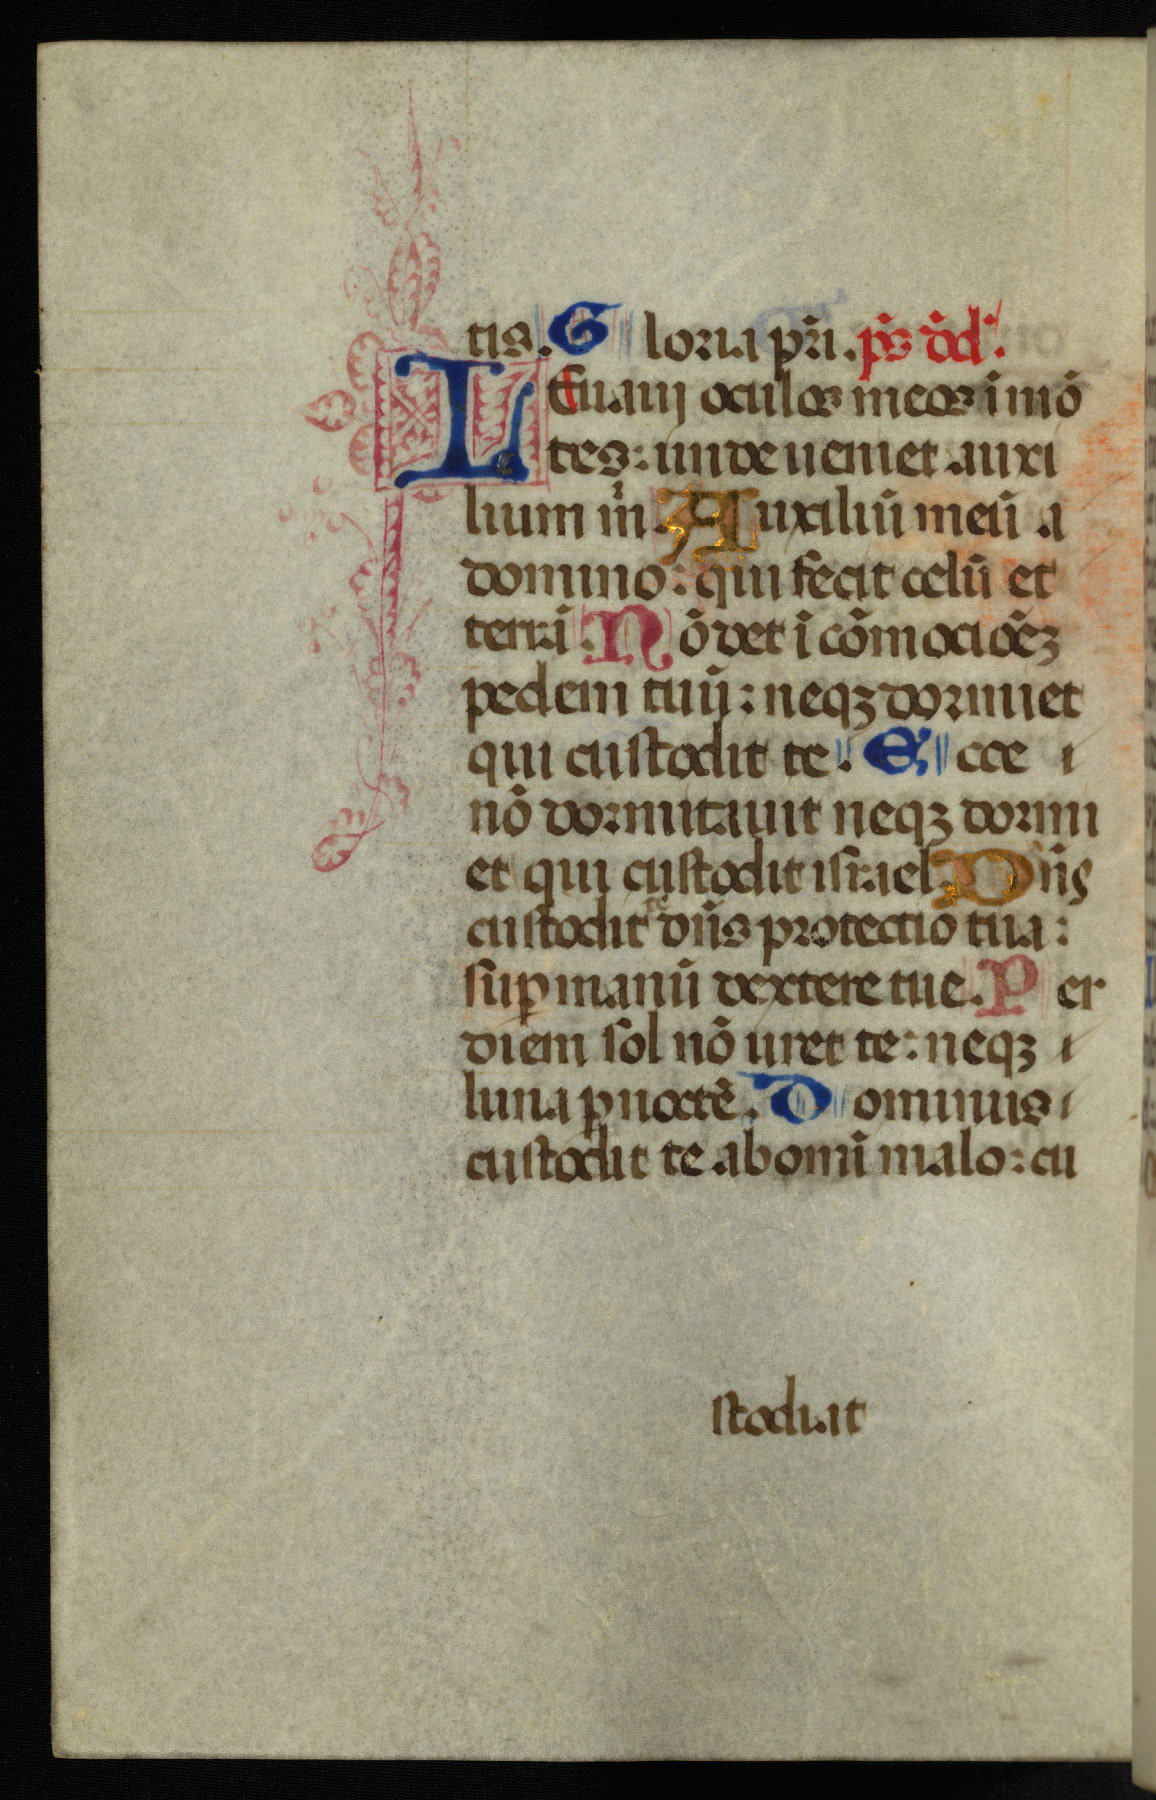 tis. Gloria pr̄i. p̄s dd̄.
Leuaui oculos meos ī mō
tes: unde ueniet auxi
lium m̄. Auxiliū meū a
domino: qui fecit celū et
terrā. Nō det ī cōmocioēꝫ
pedem tuū: neqꝫ dormiet
qui custodit te. Ecce
nō dormitauit neqꝫ dormi
et qui custodit israel. Dn̄s
custodit te dn̄s protectio tua:
sup manū dextere tue. Per
diem sol nō uret te: neqꝫ
luna p noctē. Dominus
custodit te ab omī malo: cu
stodiat